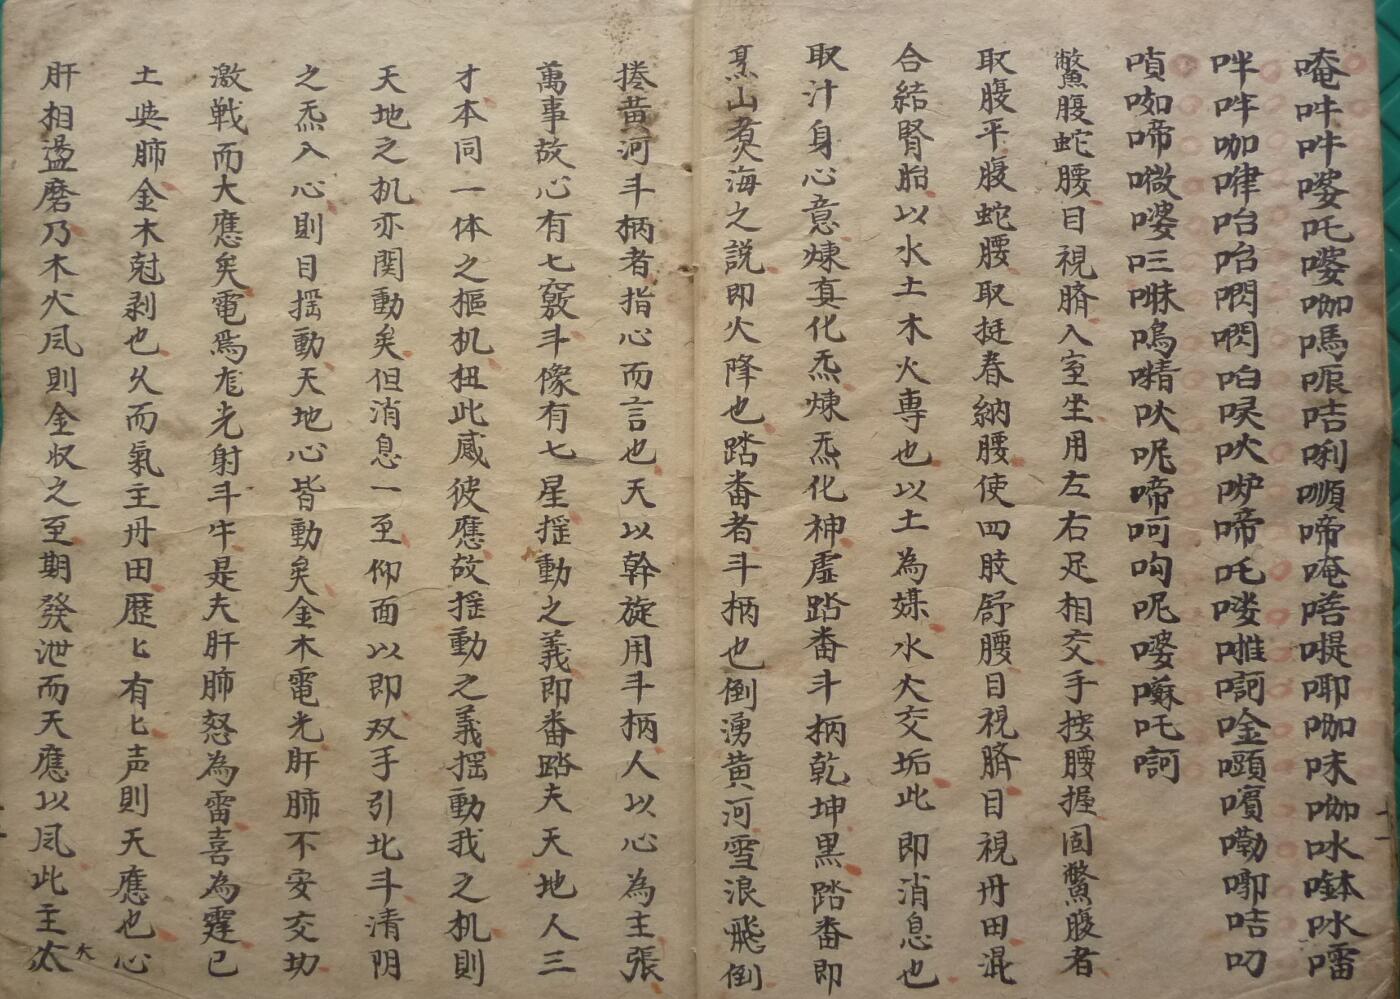 唵吽吽嘙吒嘙咖嗎哌咭唎嚬啼唵㗛喔哪咖味咖啉𠰷啉嚍
吽吽咖嘩咍咟閃閃咟唳吠𠯠啼吒喽唯訶唫㘋嚬嘞唧咭叨
嘪呶啼嘰嘙𠮿啉嗚嘖吠呢啼呵呴呢嘙囌吒訶
鱉腹蛇腰目視臍入室坐用左右足相交手按腰握固鱉腹者
取腹平腹蛇腰取挺脊納腰使四肢舒腰目視臍目視丹田混
合結腎胎以水土木火專也以土為媒水火交垢此即消息也
取汁身心意煉真化炁煉炁化神虛踏畨斗柄乾坤黑踏畨即
烹山煑海之說即火降也踏畨者斗柄也倒湧黃河雪浪飛倒
捲黃河斗柄者指心而言也天以幹旋用斗柄人以心為主張
萬事故心有七竅斗像有七星揺動之義即畨踏夫天地人三
才本同一体之樞机扭此感彼應故揺動之義揺動我之机則
天地之机亦関動矣但消息一至仰面以即双手引北斗清阴
之炁入心則目揺動天地心皆動矣金木電光肝肺不安交功
激戦而大應矣電焉尨光射斗牛是夫肝肺怒為雷喜為霆已
土與肺金木尅剥也乆而氣主丹田歴匕有匕声則天應也心
肝相盪磨乃木火风則金収之至期發泄而天應以风此主太